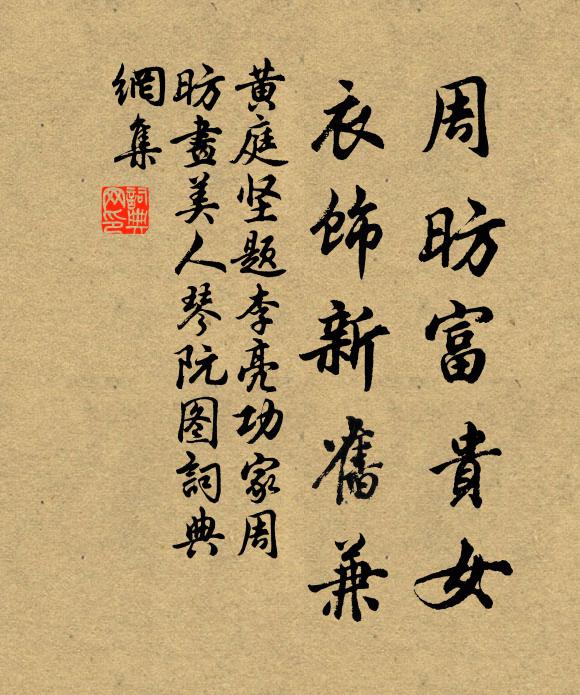 周昉富貴女
衣飾新舊兼
黄庭坚題李亮功家周
昉畫美人琴阮图詞典
網集
詞典
网印